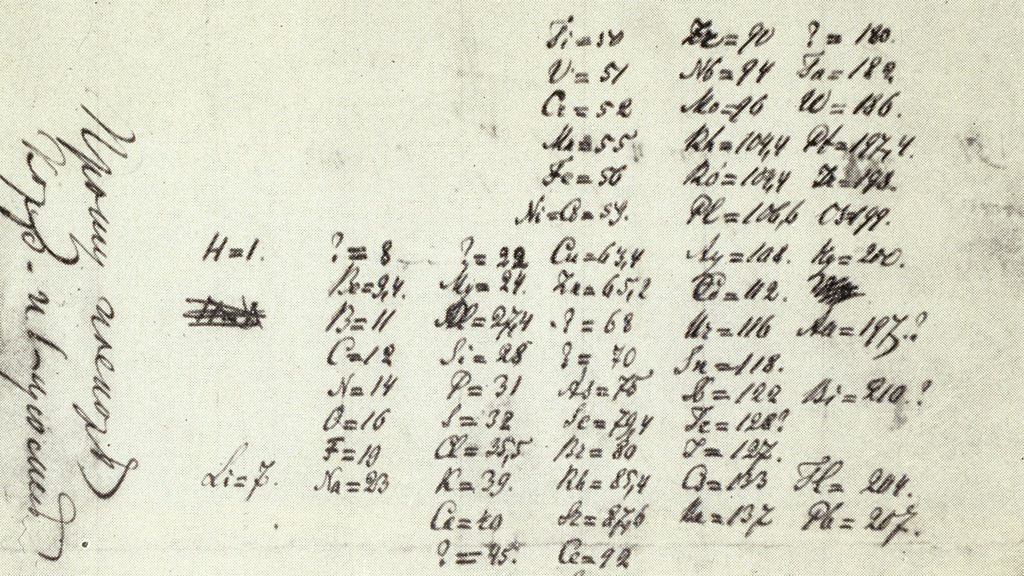 Ti=50 Zr=90 ?=180.
V=51 Nb=94 Ta=182
Cr=52 Mo=96 W=186.
Mn=55 Rh=104,4 Pt=197,4.
Fe=56 Ro=104,4 Ir=198.
Ni=Co=59. Pl=106,6 Os=199.
H=1. ?=8 ?=22 Cu=63,4 Ag=108. Hg=200.
Be=9,4. Mg=24. Zn=65,2 Cd=112.
B=11 Al=27,4 ?=68 Ur=116 Au=197?
C=12 Si=28 ?=70 Sn=118.
N=14 P=31 As=75 Sb=122 Bi=210?
O=16 S=32 Se=79,4 Te=128?
F=19 Cl=35,5 Br=80 I=127.
Li=7. Na=23 K=39. Rb=85,4 Cs=133 Tl=204.
Ca=40 Sr=87,6 Ba=137 Pb=207.
?=45. Ce=92